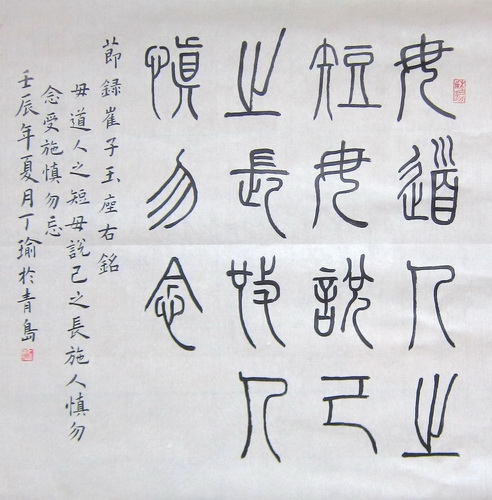 毋道人之
短毋說己
之長施人
慎勿念
節錄崔子玉座右銘
毋道人之短毋說己之長施人慎勿
念受施慎勿忘
壬辰年夏月丁瑜於青島